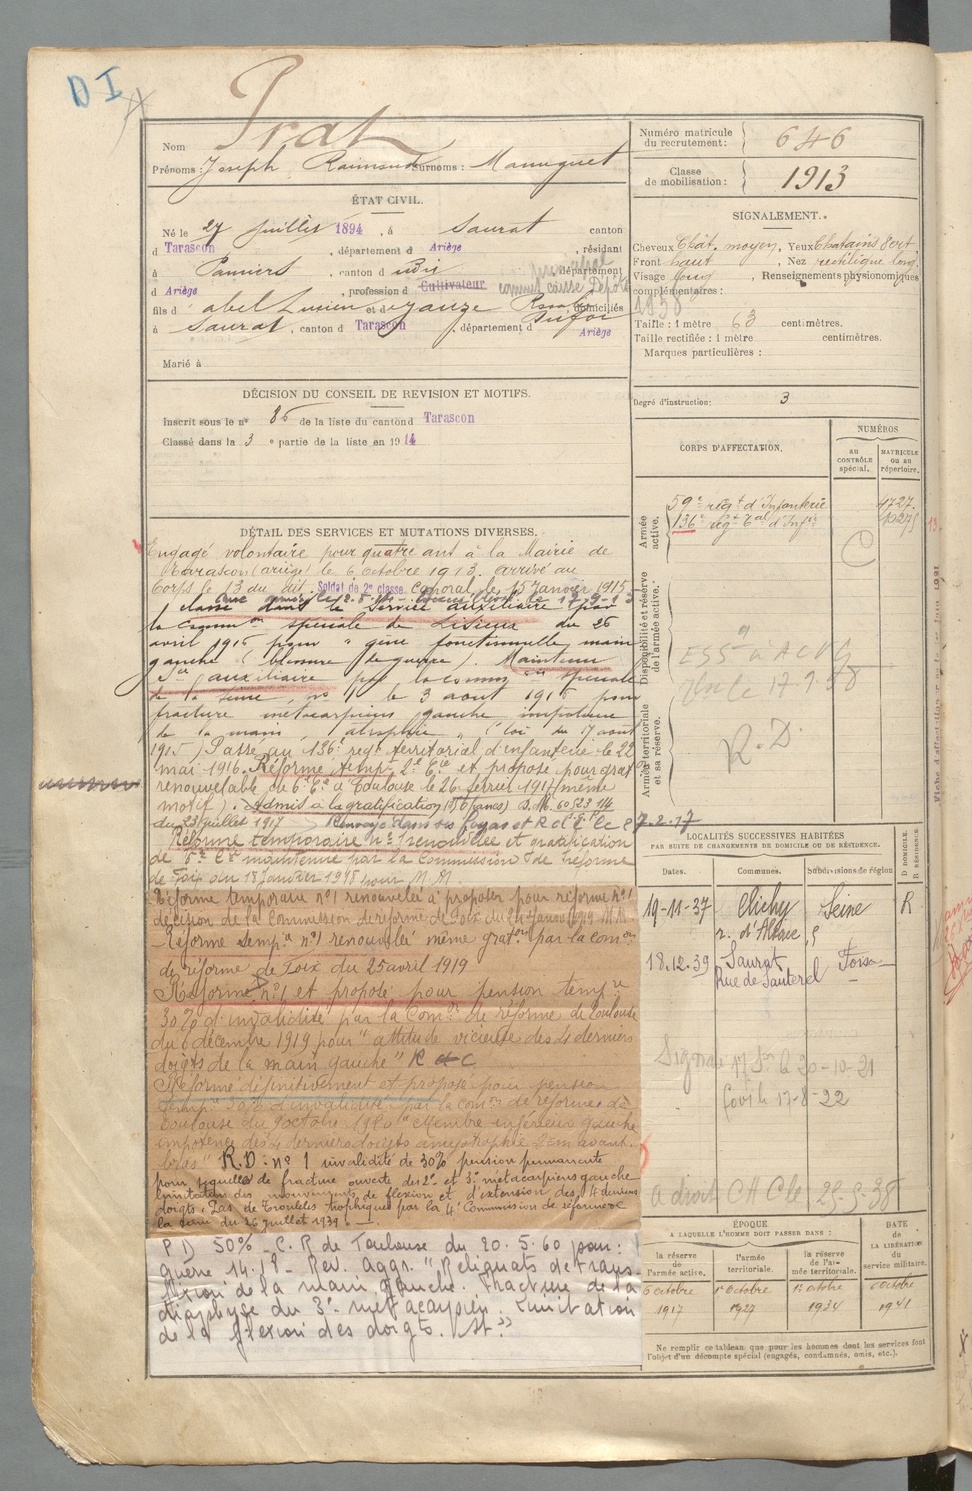 D I
Nom Prat
Prénoms : Joseph Raimond Surnoms : Maniguet
Numéro matricule du recrutement : 646
Classe de mobilisation : 1913
ÉTAT CIVIL.
Né le 27 Juillet 1894, à Saurat canton
d Tarascon, département d Ariège, résidant
à Pamiers, canton d udit, département
d Ariège, profession d Cultivateur
principal
commis caisse Dépôts
1938
fils d abel Lucien et d domiciliés
à Saurat, canton d Tarascon, département d Ariège
Marié à
SIGNALEMENT.
Cheveux Chât. moyen, Yeux Chatains vert
Front haut, Nez rectiligne long
Visage long, Renseignements physionomiques
complémentaires :
Taille : 1 mètre 63 centimètres.
Taille rectifiée : 1 mètre centimètres.
Marques particulières :
Degré d'instruction : 3
DÉCISION DU CONSEIL DE REVISION ET MOTIFS.
Inscrit sous le n° 86 de la liste du canton d Tarascon
Classé dans la 3 e partie de la liste en 1914
CORPS D'AFFECTATION.
NUMÉROS
AU CONTRÔLE spécial.
MATRICULE OU AU répertoire.
Armée active.
59e régt d'Infanterie 4727
136e régt Tal d'Infie
Disponibilité et réserve de l'armée active.
Armée territoriale et sa réserve.
R. D.
DÉTAIL DES SERVICES ET MUTATIONS DIVERSES.
Engagé volontaire pour quatre ans à la Mairie de
Tarascon (ariège) le 6 octobre 1913. arrivé au
Corps le 13 du dit. Soldat de 2e classe. Caporal le 15 Janvier 1915
classé dans le Service auxiliaire par
la Common spéciale de Lisieux du 26
avril 1916 pour " gêne fonctionnelle main
gauche (blessure de guerre). Maintenu
Sce auxiliaire par la commion spéciale
de la Seine, n° 1 le 3 aout 1916 pour
fracture métacarpiens gauche impotence
de la main, atrophie " (loi du 17 aout
1915) Passé au 136e régt territorial d'infanterie le 22
mai 1916. Réformé tempre 2e Cie et proposé pour grat
renouvelable de 6e Cie à Toulouse le 26 février 1917 (même
motif). Admis à la gratification D. M. 60523 114
du 23 Juillet 1917 Renvoyé dans ses foyers et R d C le 27.2.17
Réforme temporaire n° 1 renouvelée et gratification
de 6e Cie maintenue par la commission de réforme
de Foix du 18 Janvier 1918 pour M. M.
Réforme temporaire n°1 renouvelée à proposer pour réforme n° 1
décision de la Commission de réforme de Foix du Janvier 1919 M.M.
Réforme tempre n°1 renouvelée même graton par la comon
de réforme de Foix du 25 avril 1919
Réformé n°1 et proposé pour pension tempre
30% d'invalidité par la Comon de réforme de Toulouse
du 6 décembre 1919 pour "attitude vicieuse des 4 derniers
doigts de la main gauche" R d C
Réformé définitivement et proposé pour pension
tempre 30% d'invalidité par la comon de réforme de
Toulouse du 9 octobre 1920 "Membre inférieur gauche
impotence des 4 derniers doigts amyotrophie 2 cm avant-
bras" R.D. n° 1 invalidité de 30% pension permanente
pour séquelles de fracture ouverte des 2e et 3e métacarpiens gauche
limitation des mouvements de flexion et d'extension des 4 derniers
doigts. Pas de troubles trophiques par la 4e Commission de réforme de
la Seine du 26 juillet 1939.
P D 50% - C. R de Toulouse du 20. 5. 60 pour :
guerre 14.18 - Rev. Aggr. "Reliquats de trans-
fixion de la main gauche. Fracture de la
diaphyse du 3e métacarpien. Limitation
de la flexion des doigts. St."
LOCALITÉS SUCCESSIVES HABITÉES
PAR SUITE DE CHANGEMENTS DE DOMICILE OU DE RÉSIDENCE.
Dates. Communes. Subdivisions de région D DOMICILE. R RÉSIDENCE.
19-11-37 Clichy Seine R
r. d'Alsace, 5
18.12.39 Saurat Foix
Rue de Sauterel
le 20-10-21
17-8-22
a droit C A C le 25-5-38
ÉPOQUE
A LAQUELLE L'HOMME DOIT PASSER DANS :
DATE DE LA LIBÉRATION du service militaire.
la réserve de l'armée active. l'armée territoriale. la réserve de l'armée territoriale.
6 octobre 1917
1er octobre 1927
1er octobre 1934
octobre 1941
Ne remplir ce tableau que pour les hommes dont les services font
l'objet d'un décompte spécial (engagés, condamnés, omis, etc.).